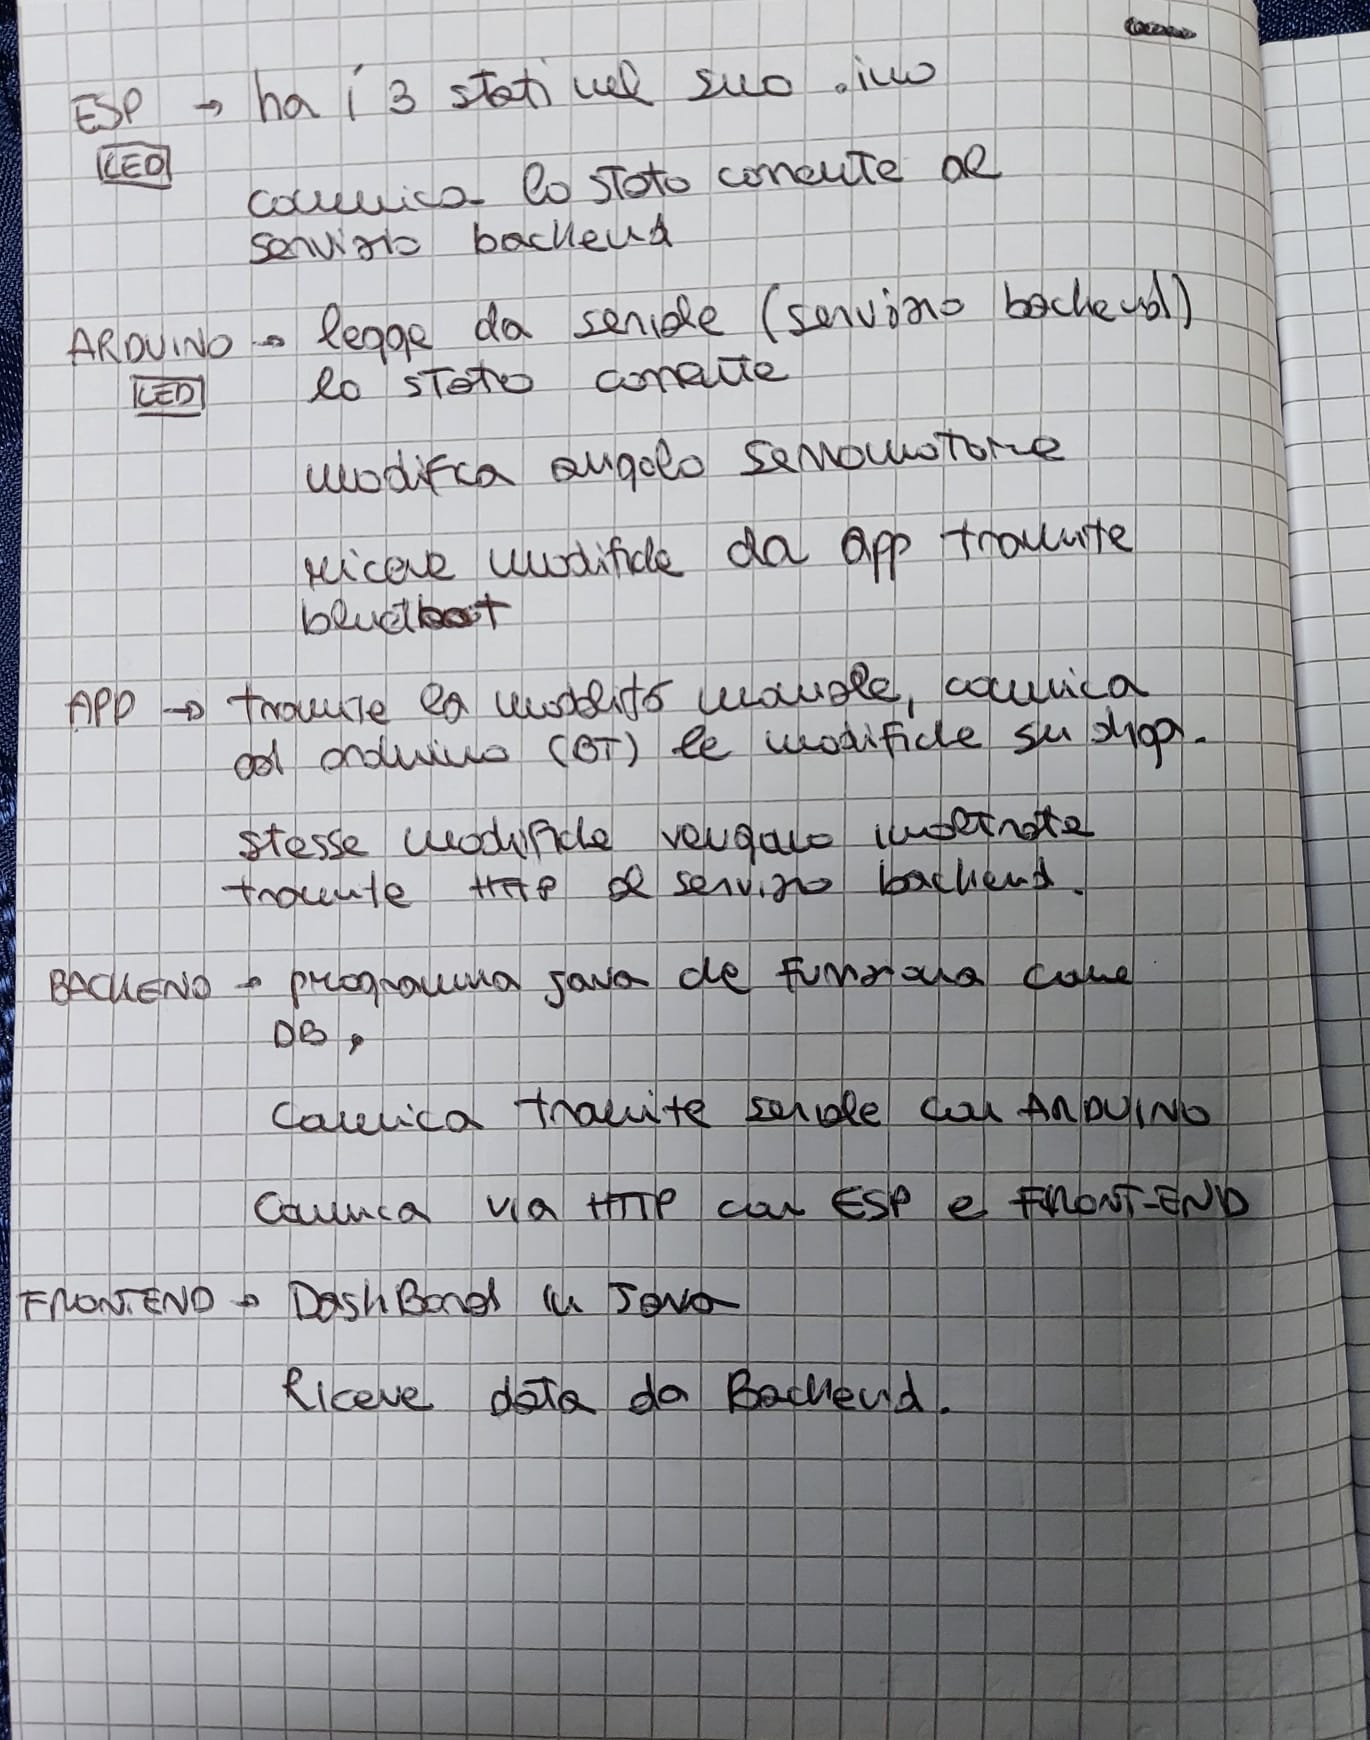 ESP → ha i 3 stati nel suo .ino
LED
comunica lo stato corrente al
servizio backend
ARDUINO → legge da seriale (servizio backend)
LED lo stato corrente
modifca angolo servomotore
riceve modifiche da app tramite
APP → tramite la modalità manuale, comunica
ad arduino (BT) le modifiche su
stesse modifiche vengano inoltrate
tramite HTTP al servizio backend.
BACKEND → programma java che funziona come
DB,
Comunica tramite seriale con ARDUINO
Comunica via HTTP con ESP e FRONT-END
FRONTEND → DashBoard in Java
Riceve data da Backend.